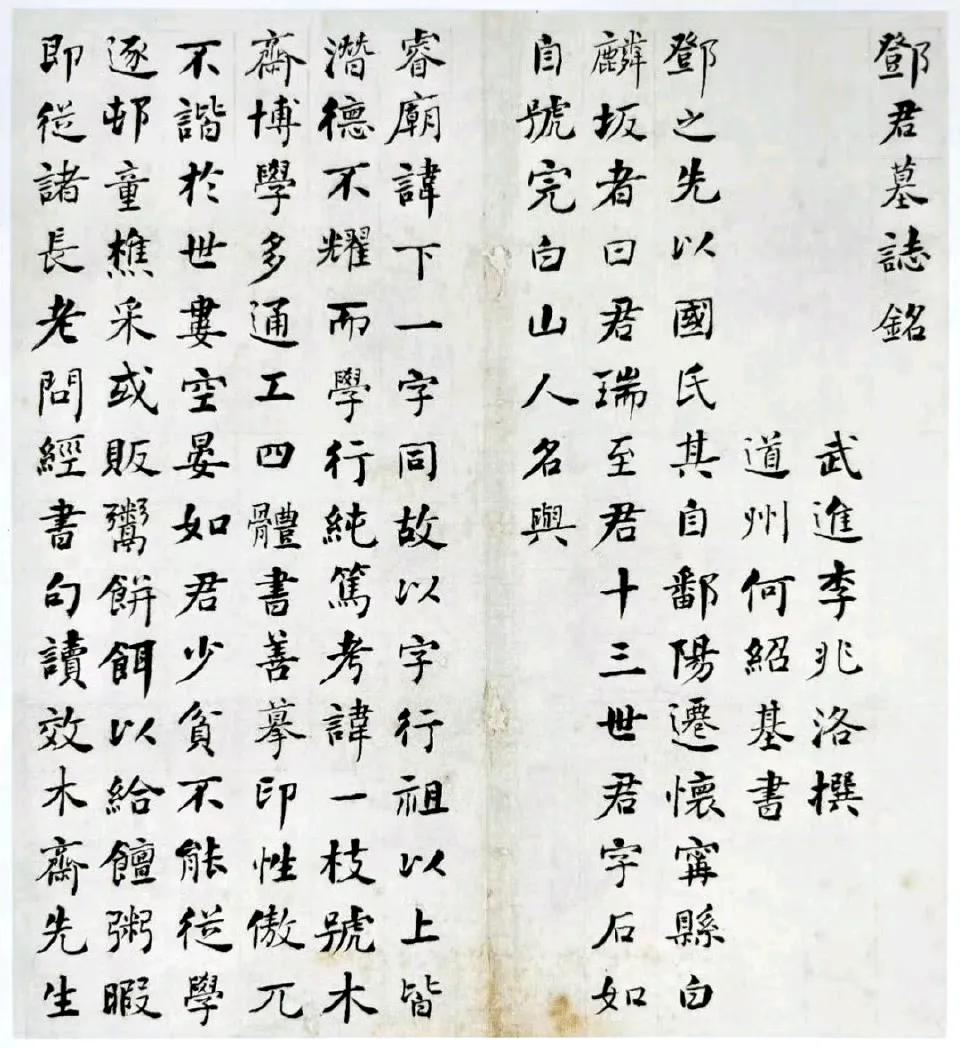 鄧君墓誌銘
武進李兆洛撰
道州何紹基書
鄧之先以國氏其自鄱陽遷懷甯縣白
麟坂者曰君瑞至君十三世君字石如
自號完白山人名與
睿廟諱下一字同故以字行祖以上皆
潛德不耀而學行純篤考諱一枝號木
齋博學多通工四體書善摹印性傲兀
不諧於世屢空晏如君少貧不能從學
逐邨童樵采或販鬻餅餌以給饘粥暇
即從諸長老問經書句讀效木齋先生